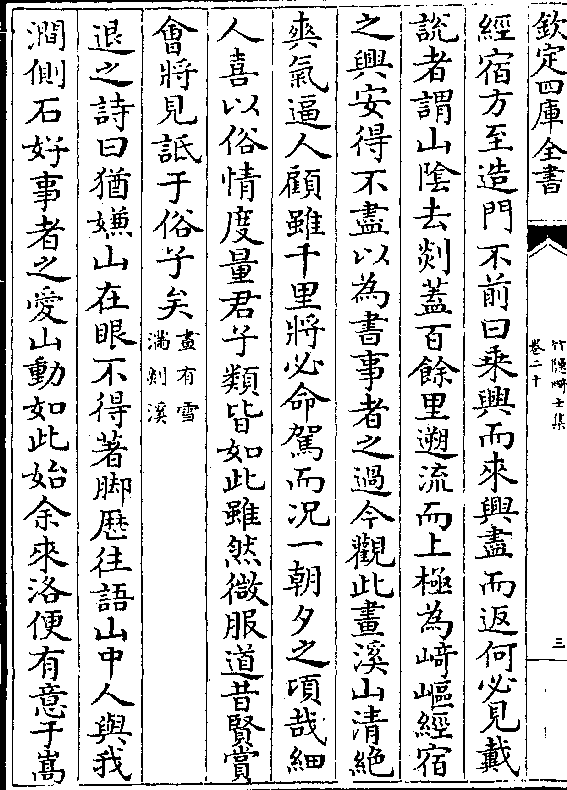 欽定四庫全書
竹隱畸士集
卷二十
三
經宿方至造門不前曰乘興而來興盡而返何必見戴
說者謂山陰去剡蓋百餘里遡流而上極為崎嶇經宿
之興安得不盡以為書事者之過今觀此畫溪山清絶
爽氣逼人顧雖千里將必命駕而況一朝夕之頃哉細
人喜以俗情度量君子類皆如此雖然微服道昔賢賞
會將見詆于俗子矣
畫有雪
滿剡溪
退之詩曰猶嫌山在眼不得著脚歴往語山中人與我
澗側石好事者之愛山動如此始余來洛便有意于嵩